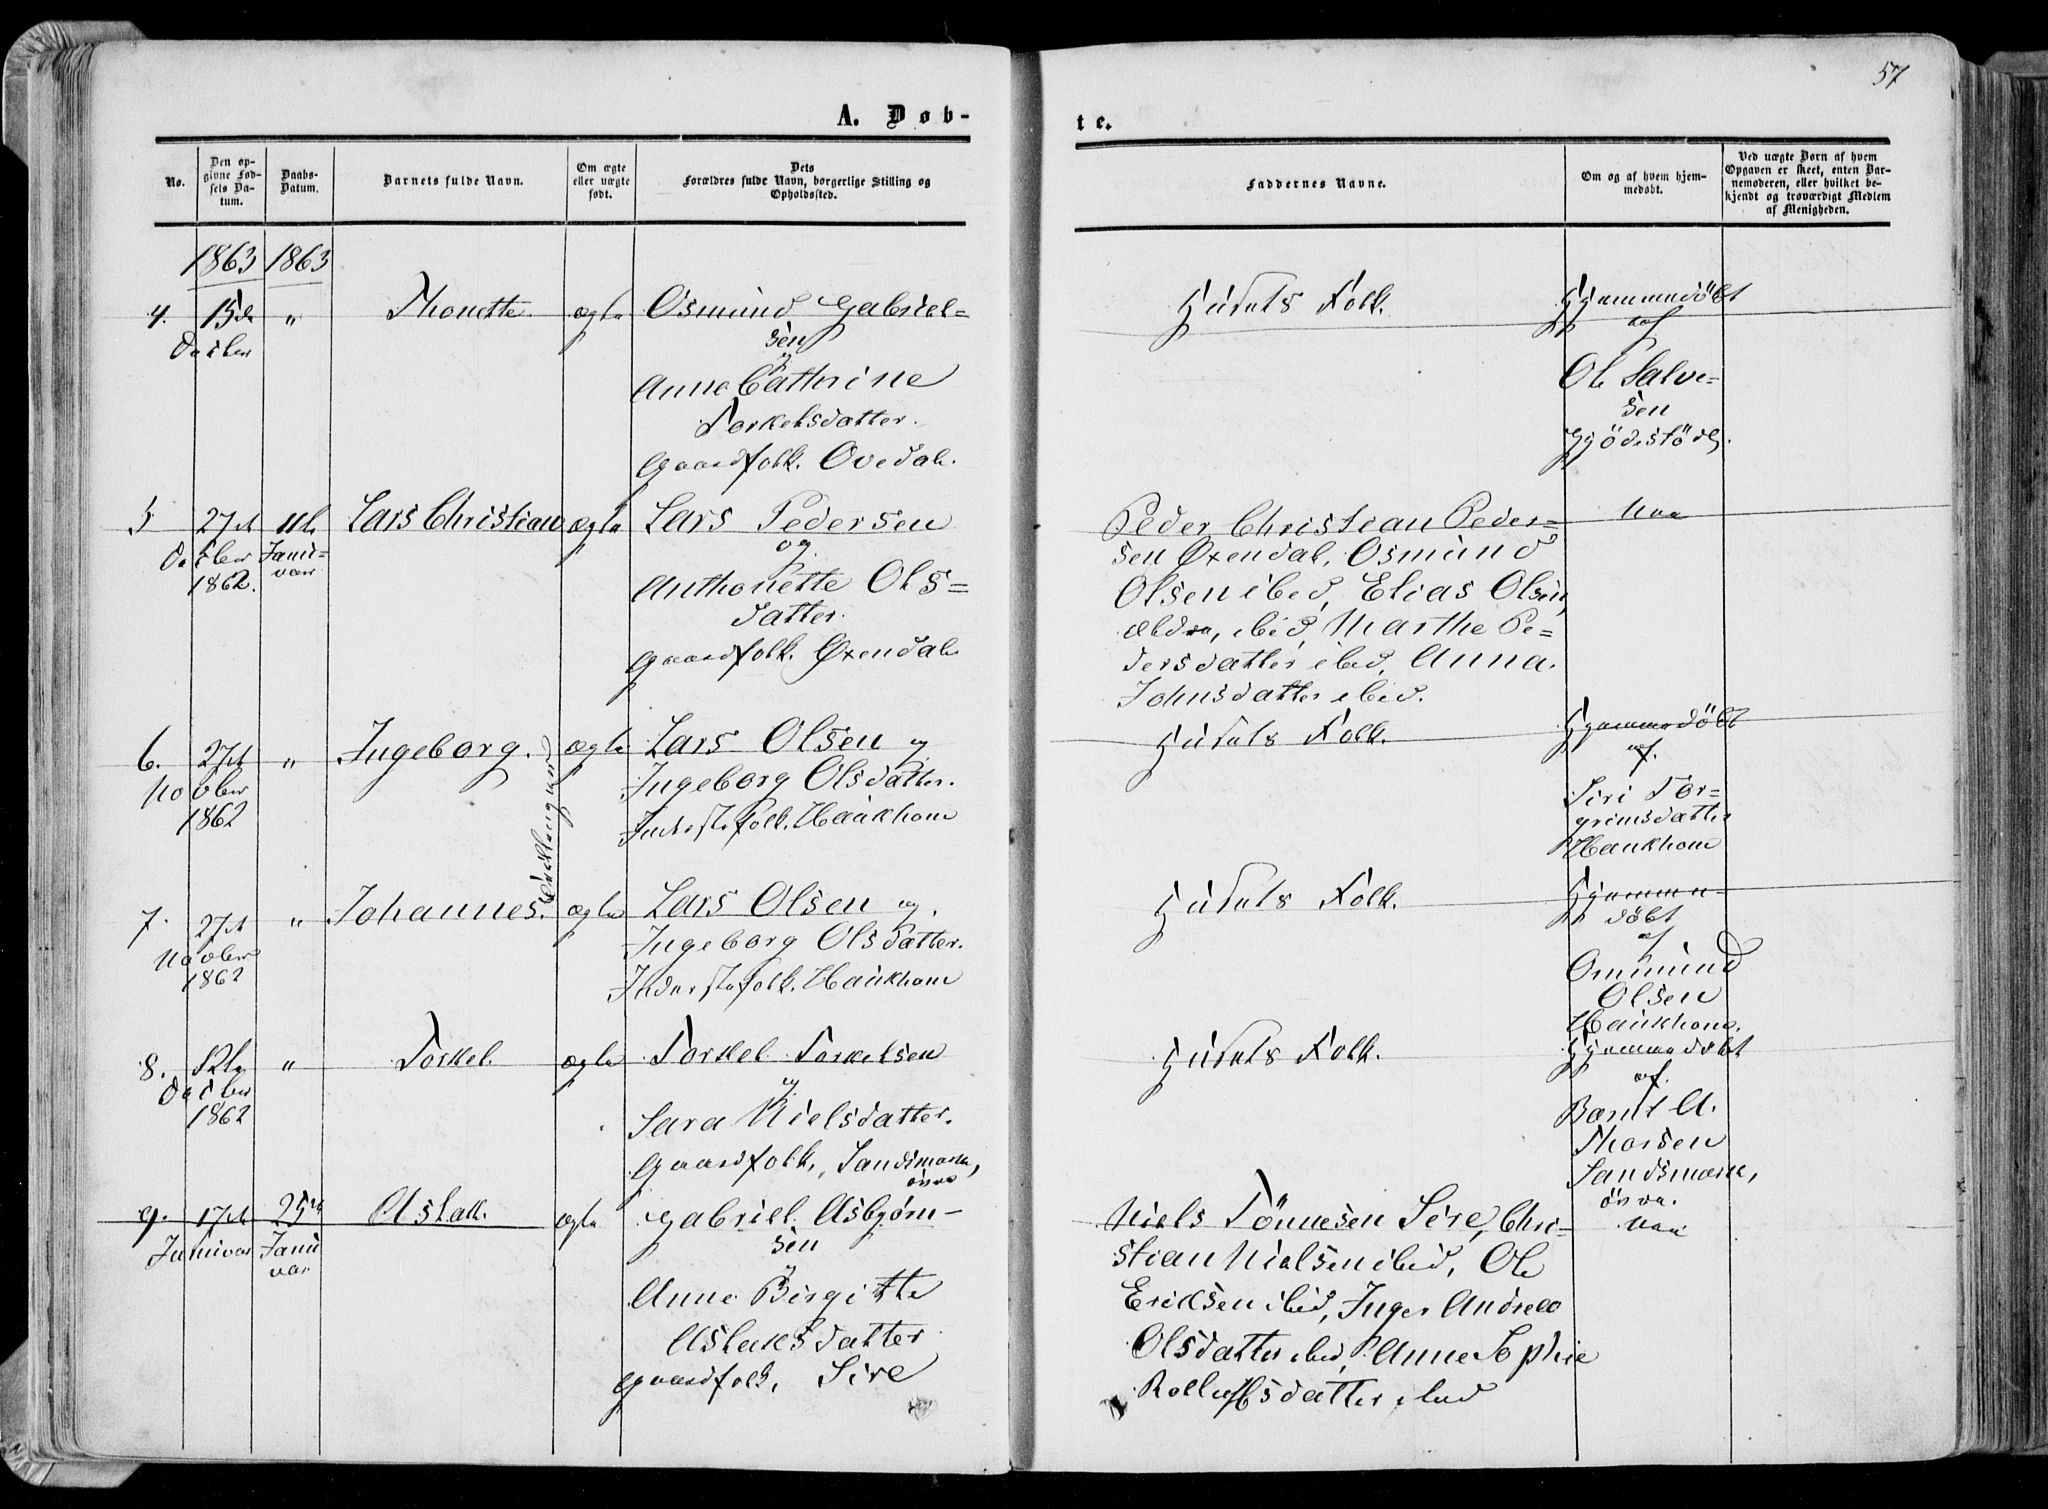 57
A. Døb-
te.
No.
Den op-
givne Fød-
sels Da-
tum.
Daabs-
Datum.
Barnets fulde Navn.
Om ægte
eller uægte
født.
Dets
Forældres fulde Navn, borgerlige Stilling og
Opholdssted.
Faddernes Navne.
Om og af hvem hjem-
medøbt.
Ved uægte Børn af hvem
Opgaven er skeet, enten Bar-
nemoderen, eller hvilket be-
kjendt og troværdigt Medlem
af Menigheden.
1863 1863
4. 15de " Thonette ægte Osmund Gabriel=
Decbr
sen
og
Anne Cathrine
Torkelsdatter.
Gaardfolk. Ovedal.
Husets Folk.
Hjemmedöbt
af
Ole Salve=
sen
Gjödestöl.
5 27de 11te Lars Christian ægte Lars Pedersen
Decber Janu-
1862. var
og
Anthonette Ols=
datter.
Gaardfolk. Øxendal
Peder Christian Peder=
sen Øxendal, Osmund
Olsen ibid, Elias Olsen,
ældre, ibid, Marthe Pe=
dersdatter ibid, Anna
Johnsdatter ibid.
Nei
6. 27de " Ingeborg. ægte Lars Olsen og
Novbr
1862
Ingeborg Olsdatter.
Inderstefolk. Haukhom
Husets Folk.
Hjemmedöbt
af.
Siri Tor=
grimsdatter
Haukhom
7. 27de " Johannes. ægte Lars Olsen og.
Novbr
1862
Ingeborg Olsdatter.
Inderstefolk. Haukhom
Husets Folk.
Hjemme=
döbt
af
Ommund
Olsen
Haukhom.
8. 12te " Torkel ægte Torkel Torkelsen
Decbr
1862
og
Sara Nielsdatter.
Gaardfolk, Sandsmark,
övre
Husets Folk.
Hjemmedöbt
af.
Bernt A.
Thorsen
Sandsmark,
övre.
9. 17de 25de Aslak. ægte Gabriel Asbjørn-
Januvar Janu
var
sen
og
Anne Birgitte
Aslaksdatter
Gaardfolk, Sire
Niels Tönnesen Sire, Chri=
stian Nielsen ibid, Ole
Eriksen ibid, Inger Andrea
Olsdatter ibid, Anne Sophie
Rolleifsdatter ibid
Nei